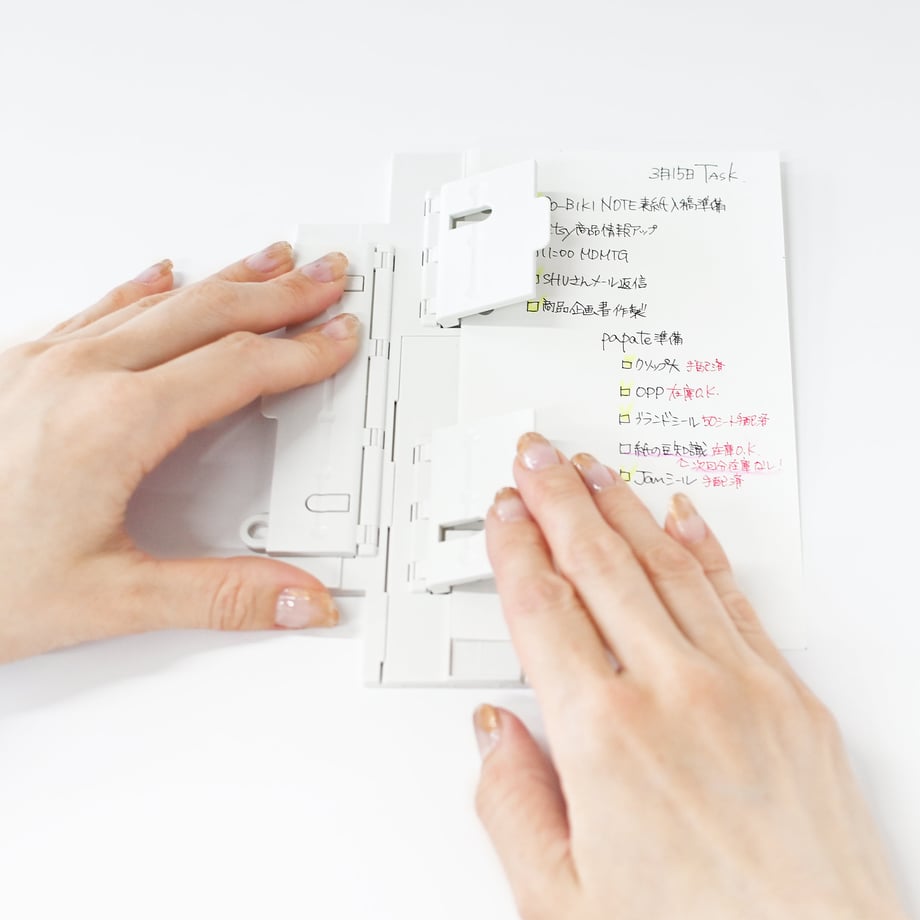 3月15日 Task
o-BIKI NOTE 表紙入稿準備
tsy商品情報アップ
11:00 MDMTG
SHUさんメール返信
商品企画書作製
papate準備
クリップ大 手配済
OPP 在庫O.K.
ブランドシール 50シート手配済
紙の豆知識 在庫O.K.
次回分在庫なし!
Jamシール 手配済